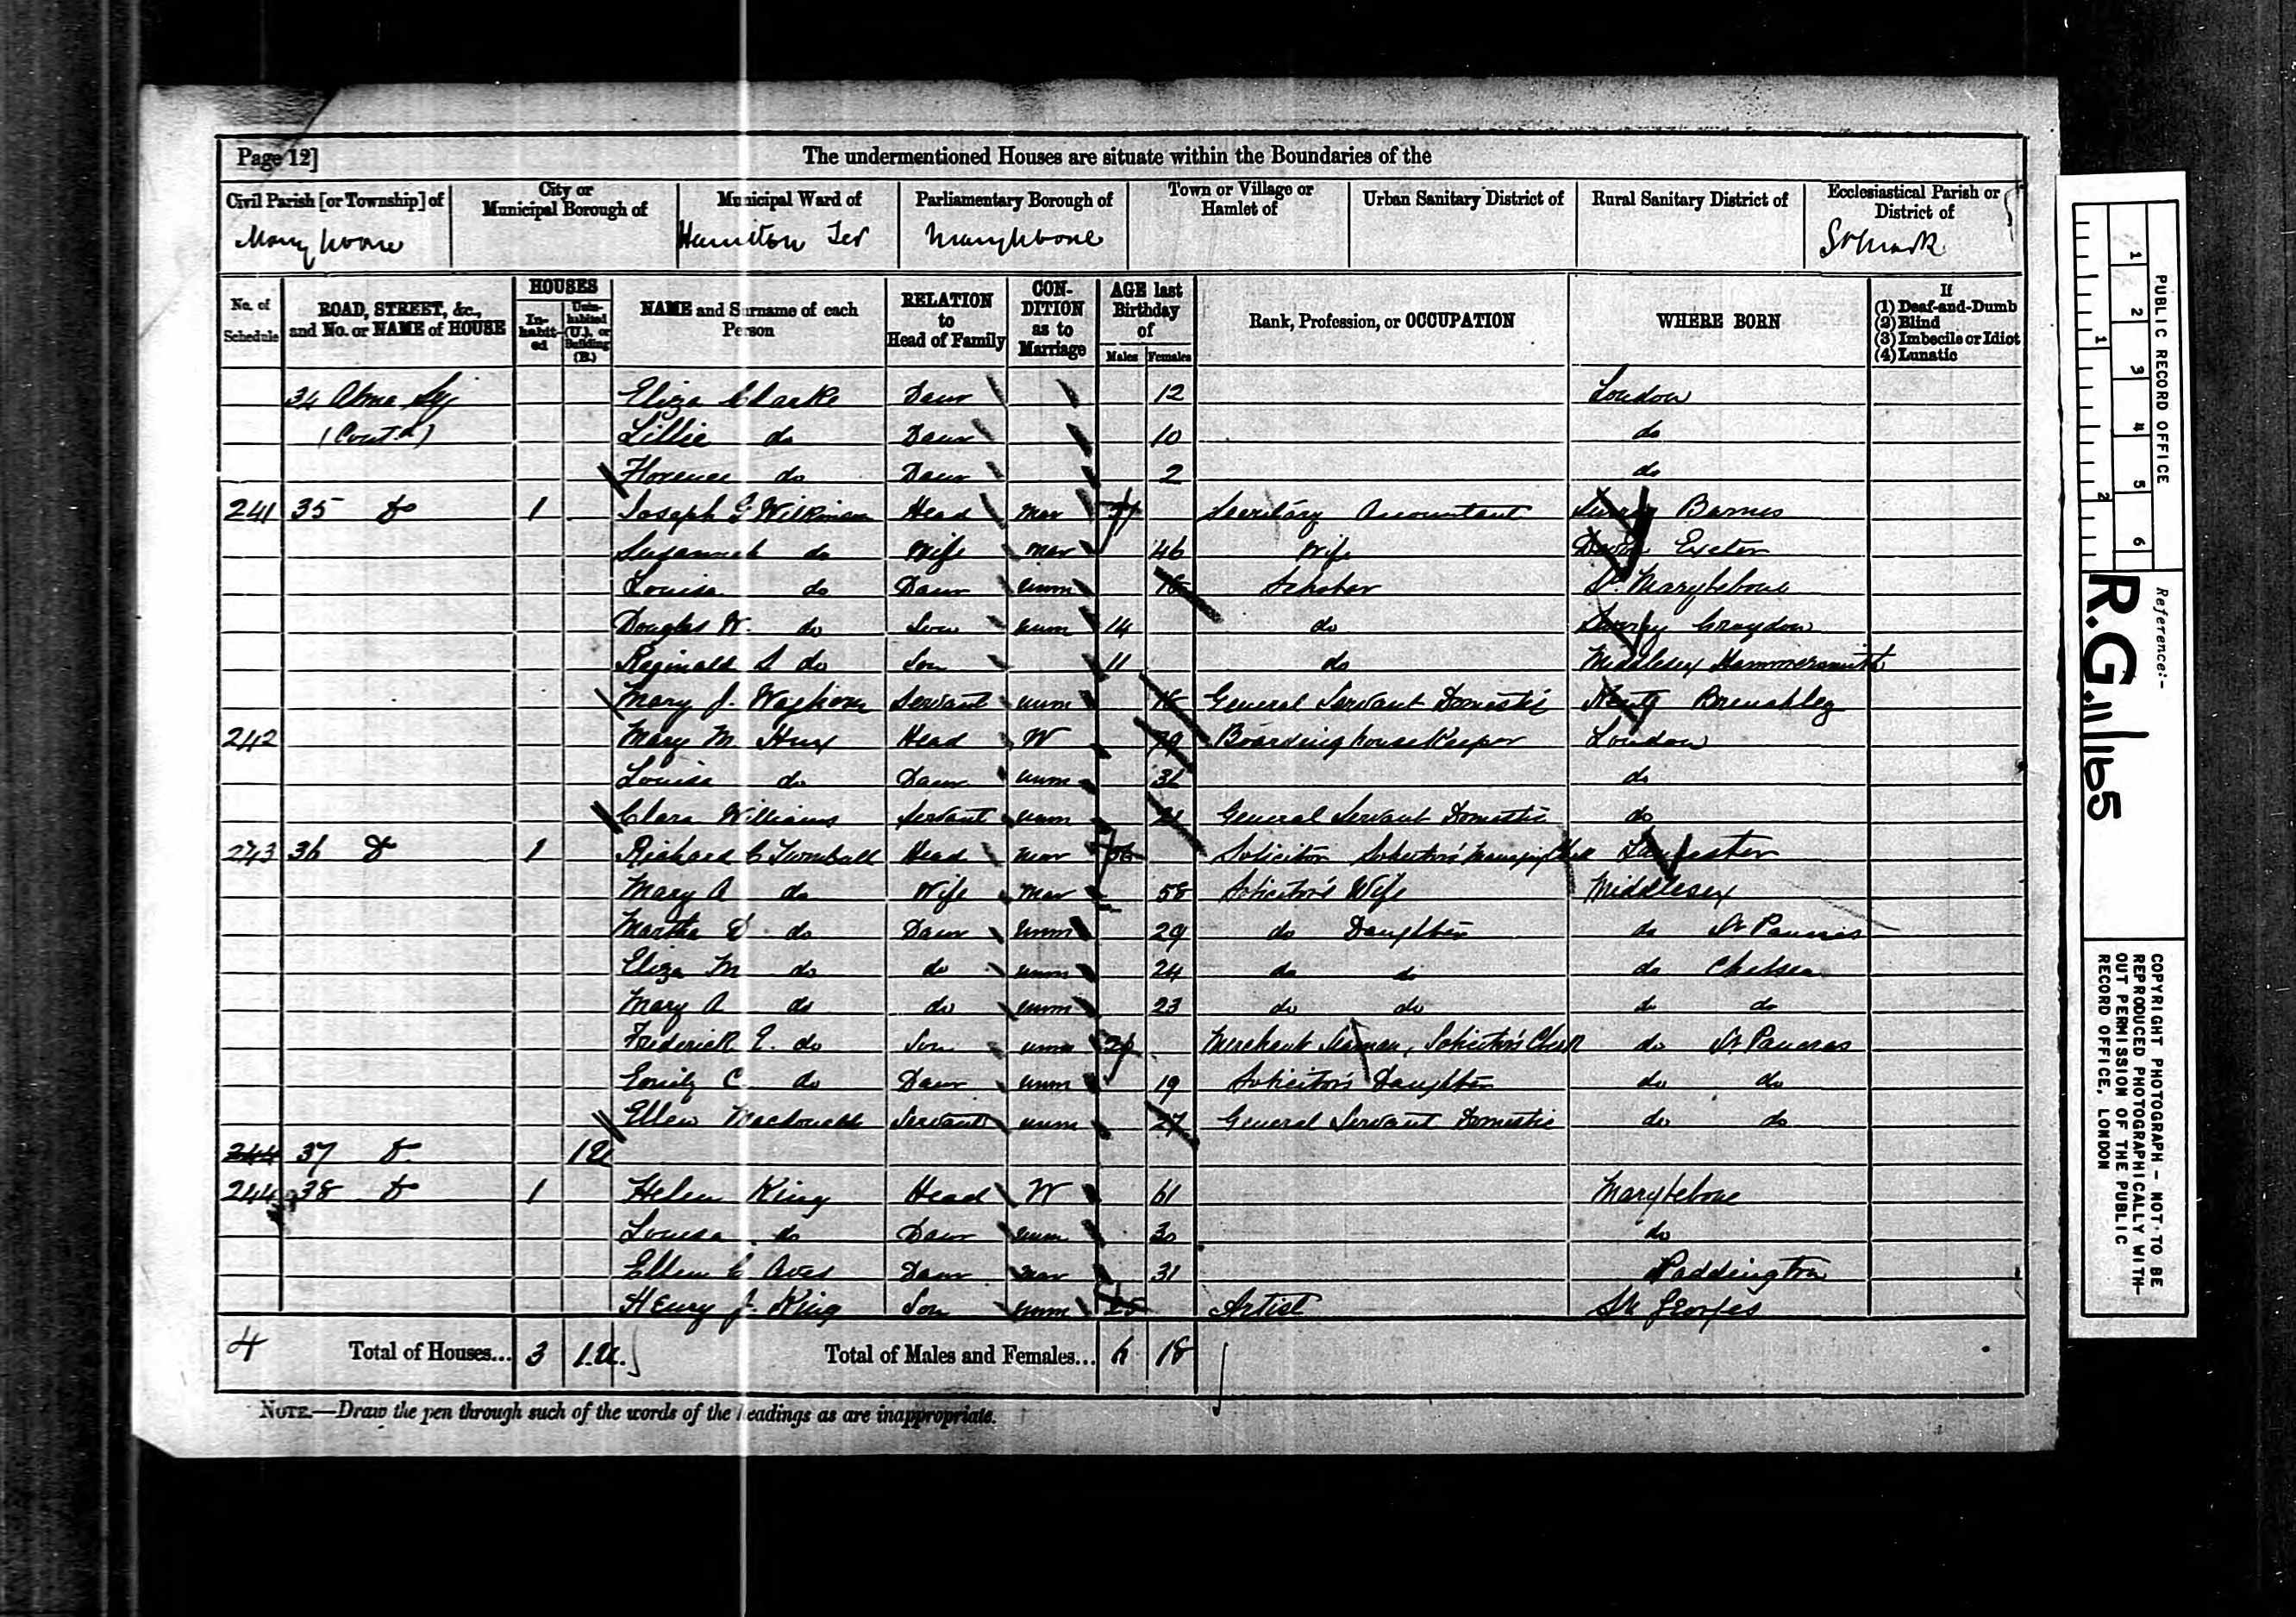 Page 12] The undermentioned Houses are situate within the Boundaries of the
Civil Parish [or Township] of City or Municipal Borough of Municipal Ward of Parliamentary Borough of Town or Village or Hamlet of Urban Sanitary District of Rural Sanitary District of Ecclesiastical Parish or District of
Marylebone Hamilton Ter Marylebone St Mark
No. of Schedule ROAD, STREET, &c., and No. or NAME of HOUSE HOUSES Inhabited Uninhabited (U.), or Building (B.) NAME and Surname of each Person RELATION to Head of Family CONDITION as to Marriage AGE last Birthday of Males Females Rank, Profession, or OCCUPATION WHERE BORN If (1) Deaf-and-Dumb (2) Blind (3) Imbecile or Idiot (4) Lunatic
34 Alma Sq Eliza Clarke Daur 12 London
(Cont.d) Lillie do Daur 10 do
Florence do Daur 2 do
241 35 do 1 Joseph G Wilkinson Head Mar Secretary Accountant Surrey Barnes
Susannah do Wife Mar 46 Wife Devon Exeter
Louisa do Daur unm Scholar St. Marylebone
Douglas W. do Son unm 14 do Surrey Croydon
Reginald S do Son 11 do Middlesex Hammersmith
Mary J. Servant unm General Servant Domestic Kent Brenchley
242 Mary M Head W Boarding house Keeper London
Louisa do Daur unm do
Clara Williams Servant unm 21 General Servant Domestic do
243 36 do 1 Richard C Turnbull Head Mar Solicitor Solicitor's Managing Clerk
Mary A do Wife Mar 58 Solicitor's Wife Middlesex
Martha do Daur unm 29 do Daughter do St Pancras
Eliza M do do unm 24 do do do Chelsea
Mary A do do unm 23 do do do do
Frederick E. do Son unm Merchant Seaman, Solicitor's Clerk do St Pancras
Emily C do Daur unm 19 Solicitor's Daughter do do
Ellen Servant unm 27 General Servant Domestic do do
244 37 do 1U
244 38 do 1 Helen King Head W 61 Marylebone
Louisa do Daur unm 30 do
Ellen C Daur Mar 31 Paddington
Henry J. King Son unm 25 Artist St Georges
4 Total of Houses... 3 1.U. Total of Males and Females... 6 18
NOTE.—Draw the pen through such of the words of the headings as are inappropriate.
PUBLIC RECORD OFFICE
1 2 3 4 5 6
1 2
Reference:-
R.G. 11/165
COPYRIGHT PHOTOGRAPH - NOT TO BE
REPRODUCED PHOTOGRAPHICALLY WITH-
OUT PERMISSION OF THE PUBLIC
RECORD OFFICE, LONDON